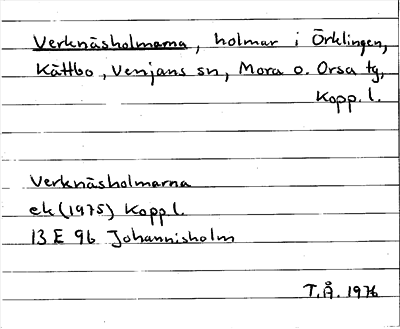 Verknäsholmarna, holmar i Örklingen,
Kättbo, Venjans sn, Mora o. Orsa tg,
Kopp. l.
Verknäsholmarna
ek (1975) Kopp l.
13 E 9b Johannisholm
T.Å. 1976